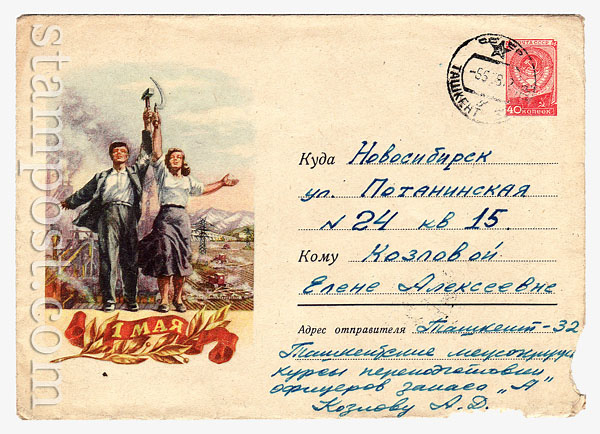 stampost.com
ПОЧТА СССР
40 КОПЕЕК
ТАШКЕНТ
1 МАЯ
Куда Новосибирск
ул. Потанинская
N 24 кв 15.
Кому Козловой
Елене Алексеевне
Адрес отправителя Ташкент-32
Ташкентские
курсы переподготовки
офицеров запаса „А"
Козлову А.Д.